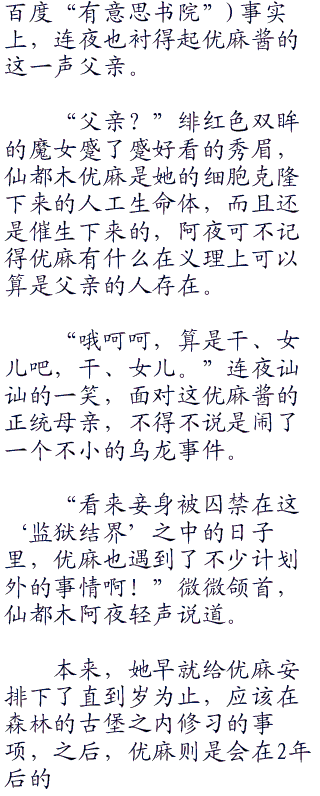 百度“有意思书院”)事实
上，连夜也衬得起优麻酱的
这一声父亲。
“父亲？”绯红色双眸
的魔女蹙了蹙好看的秀眉，
仙都木优麻是她的细胞克隆
下来的人工生命体，而且还
是催生下来的，阿夜可不记
得优麻有什么在义理上可以
算是父亲的人存在。
“哦呵呵，算是干、女
儿吧，干、女儿。”连夜讪
讪的一笑，面对这优麻酱的
正统母亲，不得不说是闹了
一个不小的乌龙事件。
“看来妾身被囚禁在这
‘监狱结界’之中的日子
里，优麻也遇到了不少计划
外的事情啊！”微微颌首，
仙都木阿夜轻声说道。
本来，她早就给优麻安
排下了直到岁为止，应该在
森林的古堡之内修习的事
项，之后，优麻则是会在2年
后的